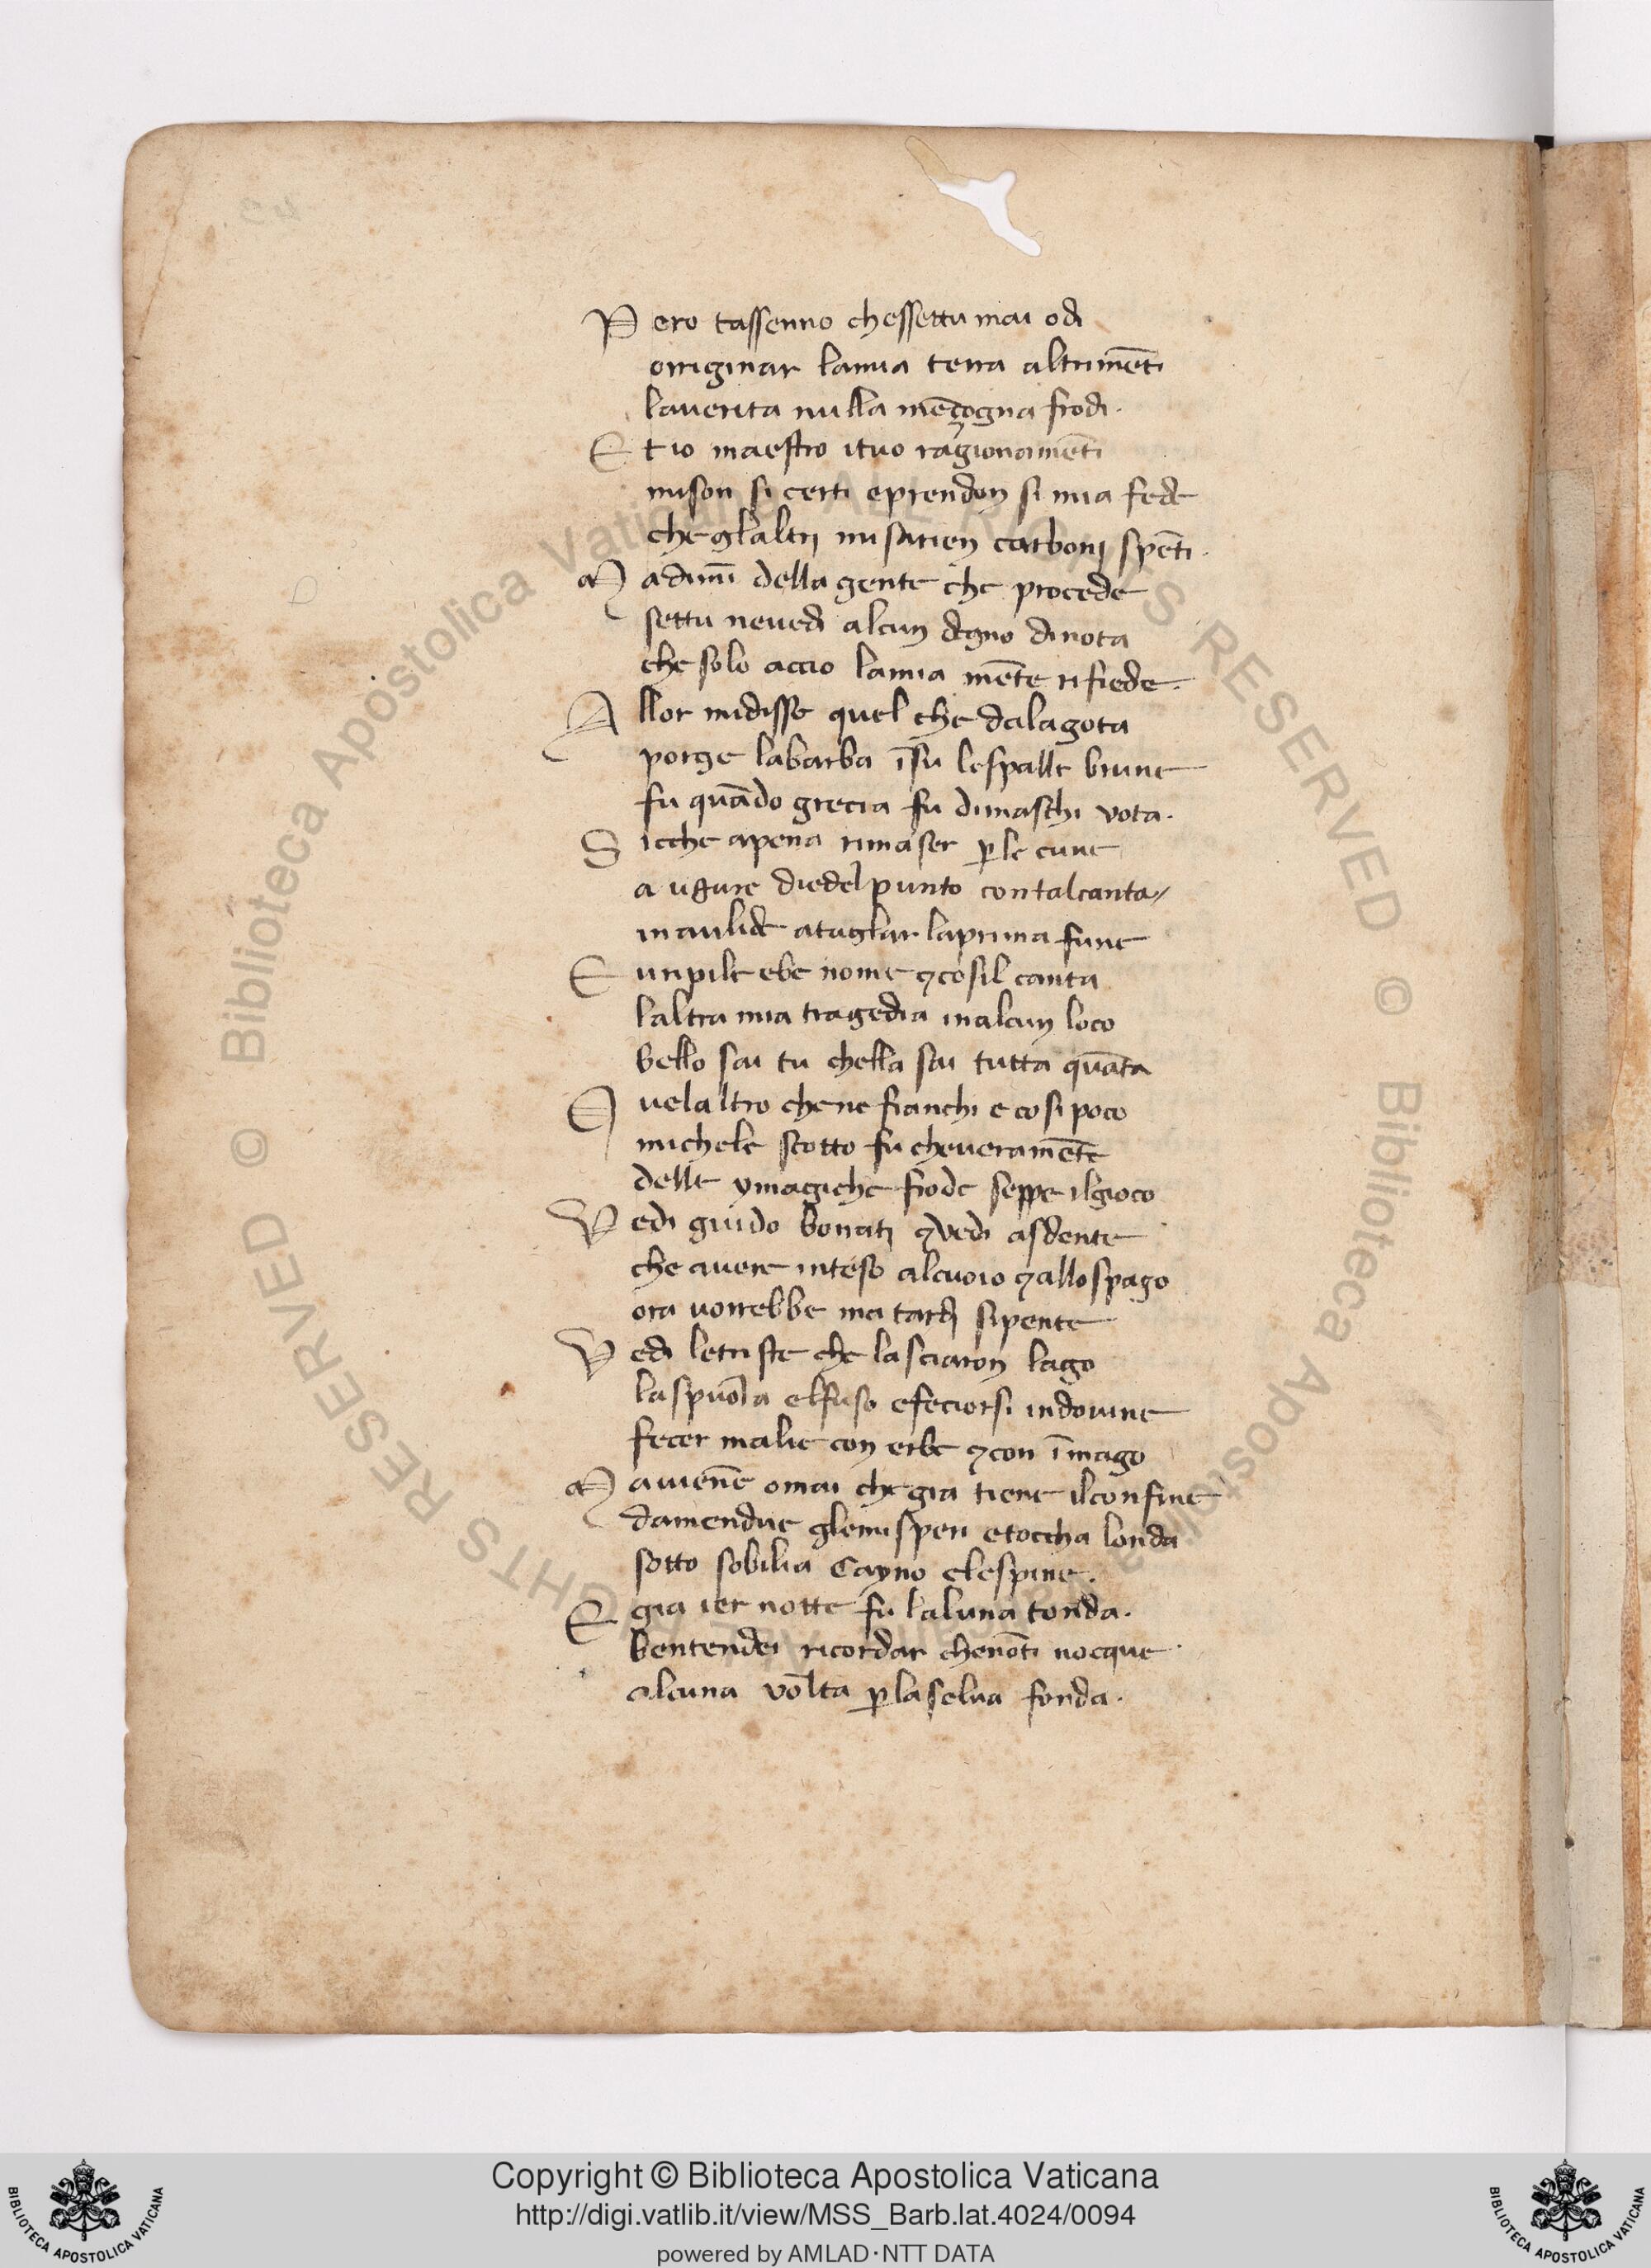 Pero tassenno chessettu mai odi
orriginar lamia terra altrimēti
laverita nulla mēçogna frodi.
Et io maestro ituo ragionamēti
mison si certi eprendon si mia fede
che glaltri misarien carboni spēti.
Ma dimī della gente che procede
settu nevedi alcun degno dinota
che solo accio lamia mēte rifiede.
Allor midisse quel che dalagota
porge labarba īsu lespalle brune
fu quādo grecia fu dimaschi vota.
Sicche apena rimaser ꝑle cune
augure diedel punto contalcanta/
inaulide atagliar laprima fune
Eunpile ebe nome ⁊ cosil canta
laltra mia tragedia inalcun loco
bello sai tu chella sai tutta quāta
Quelaltro chene fianchi e cosi poco
michele scotto fu cheveramēte
delle ymagiche frode seppe ilgioco
Vedi guido bonati ⁊ vedi asdente
che avere inteso alcuoio ⁊ allo spago
ora vorrebbe ma tardi sipente
Vedi letriste che lasciaron lago
laspuola elfuso efeciorsi indovine
fecer malie con erbe ⁊ con īmago
Mavienē omai che gia tiene ilconfine
damendue glemisperi etoccha londa
sotto sobilia Cayno elespine.
E gia ier notte fu laluna tonda.
bentendei ricordar chenōti nocque
alcuna volta ꝑlaselva fonda.
Biblioteca Apostolica Vaticana ALL RIGHTS RESERVED ©
Copyright © Biblioteca Apostolica Vaticana
http://digi.vatlib.it/view/MSS_Barb.lat.4024/0094
powered by AMLAD·NTT DATA
BIBLIOTECA APOSTOLICA VATICANA
BIBLIOTECA APOSTOLICA VATICANA